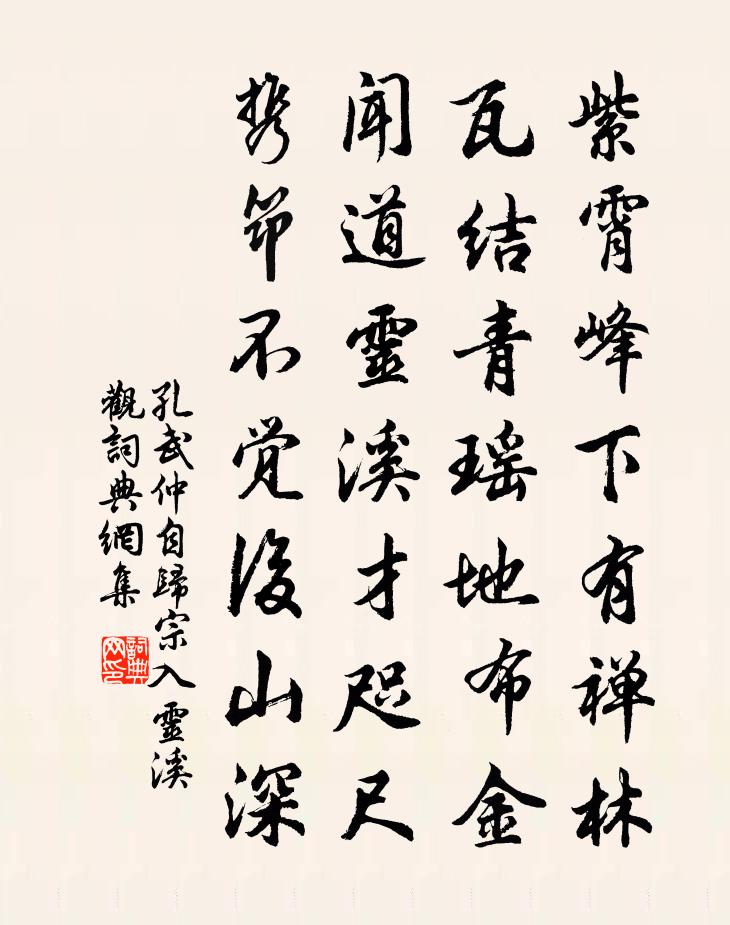 紫霄峰下有禅林
瓦结青瑶地布金
闻道靈溪才咫尺
携筇不觉後山深
孔武仲自歸宗入靈溪
觀詞典網集
詞典网印